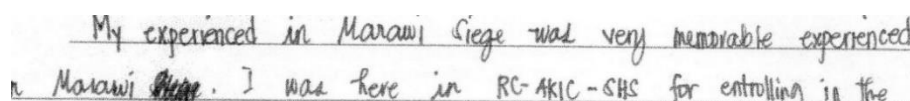 My experienced in Marawi Siege was very memorable experienced
n Marawi . I was here in RC-AKIC-SHS for entrolling in the